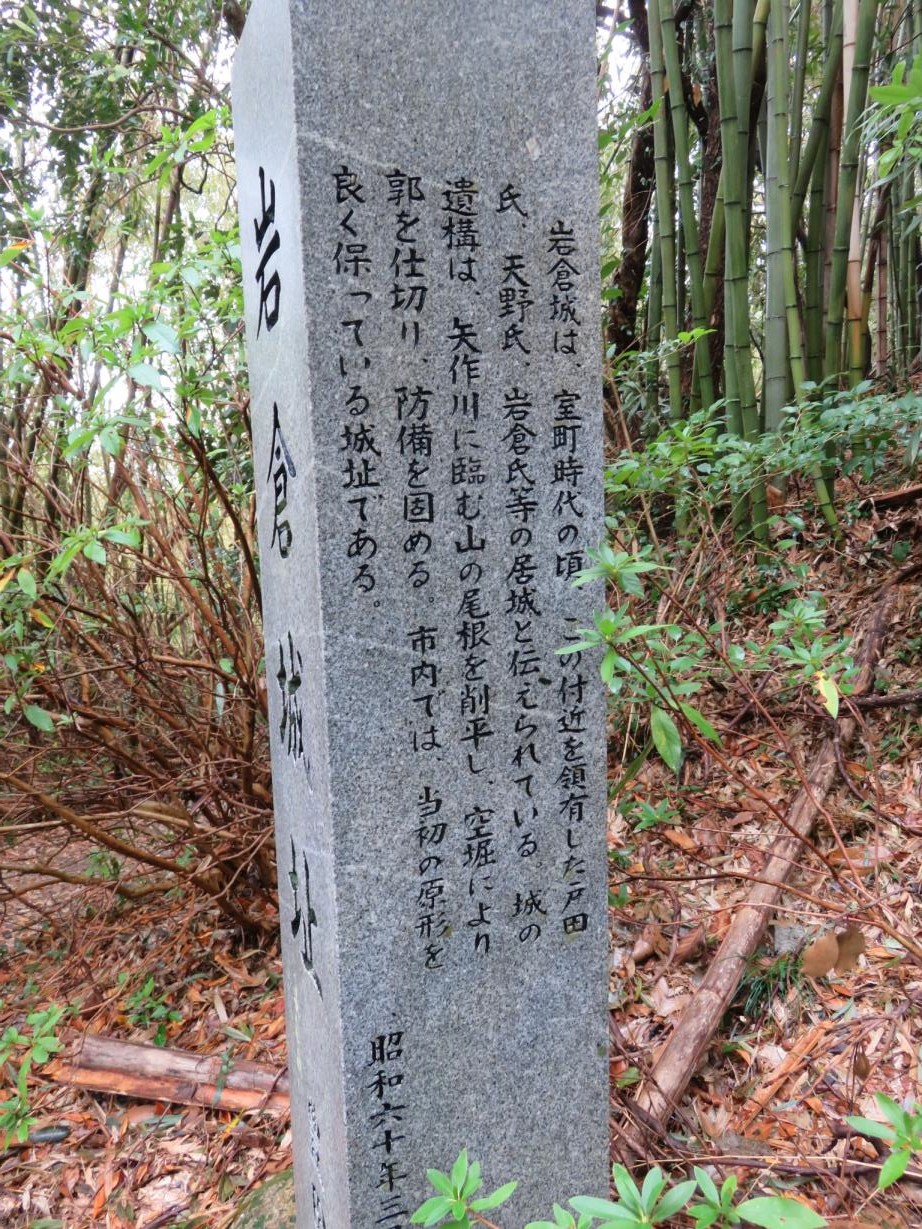 岩倉城は、室町時代の頃、この付近を領有した戸田
氏、天野氏、岩倉氏等の居城と伝えられている。城の
遺構は、矢作川に臨む山の尾根を削平し、空堀により
郭を仕切り、防備を固める。市内では、当初の原形を
良く保っている城址である。
昭和六十年三
岩倉城址